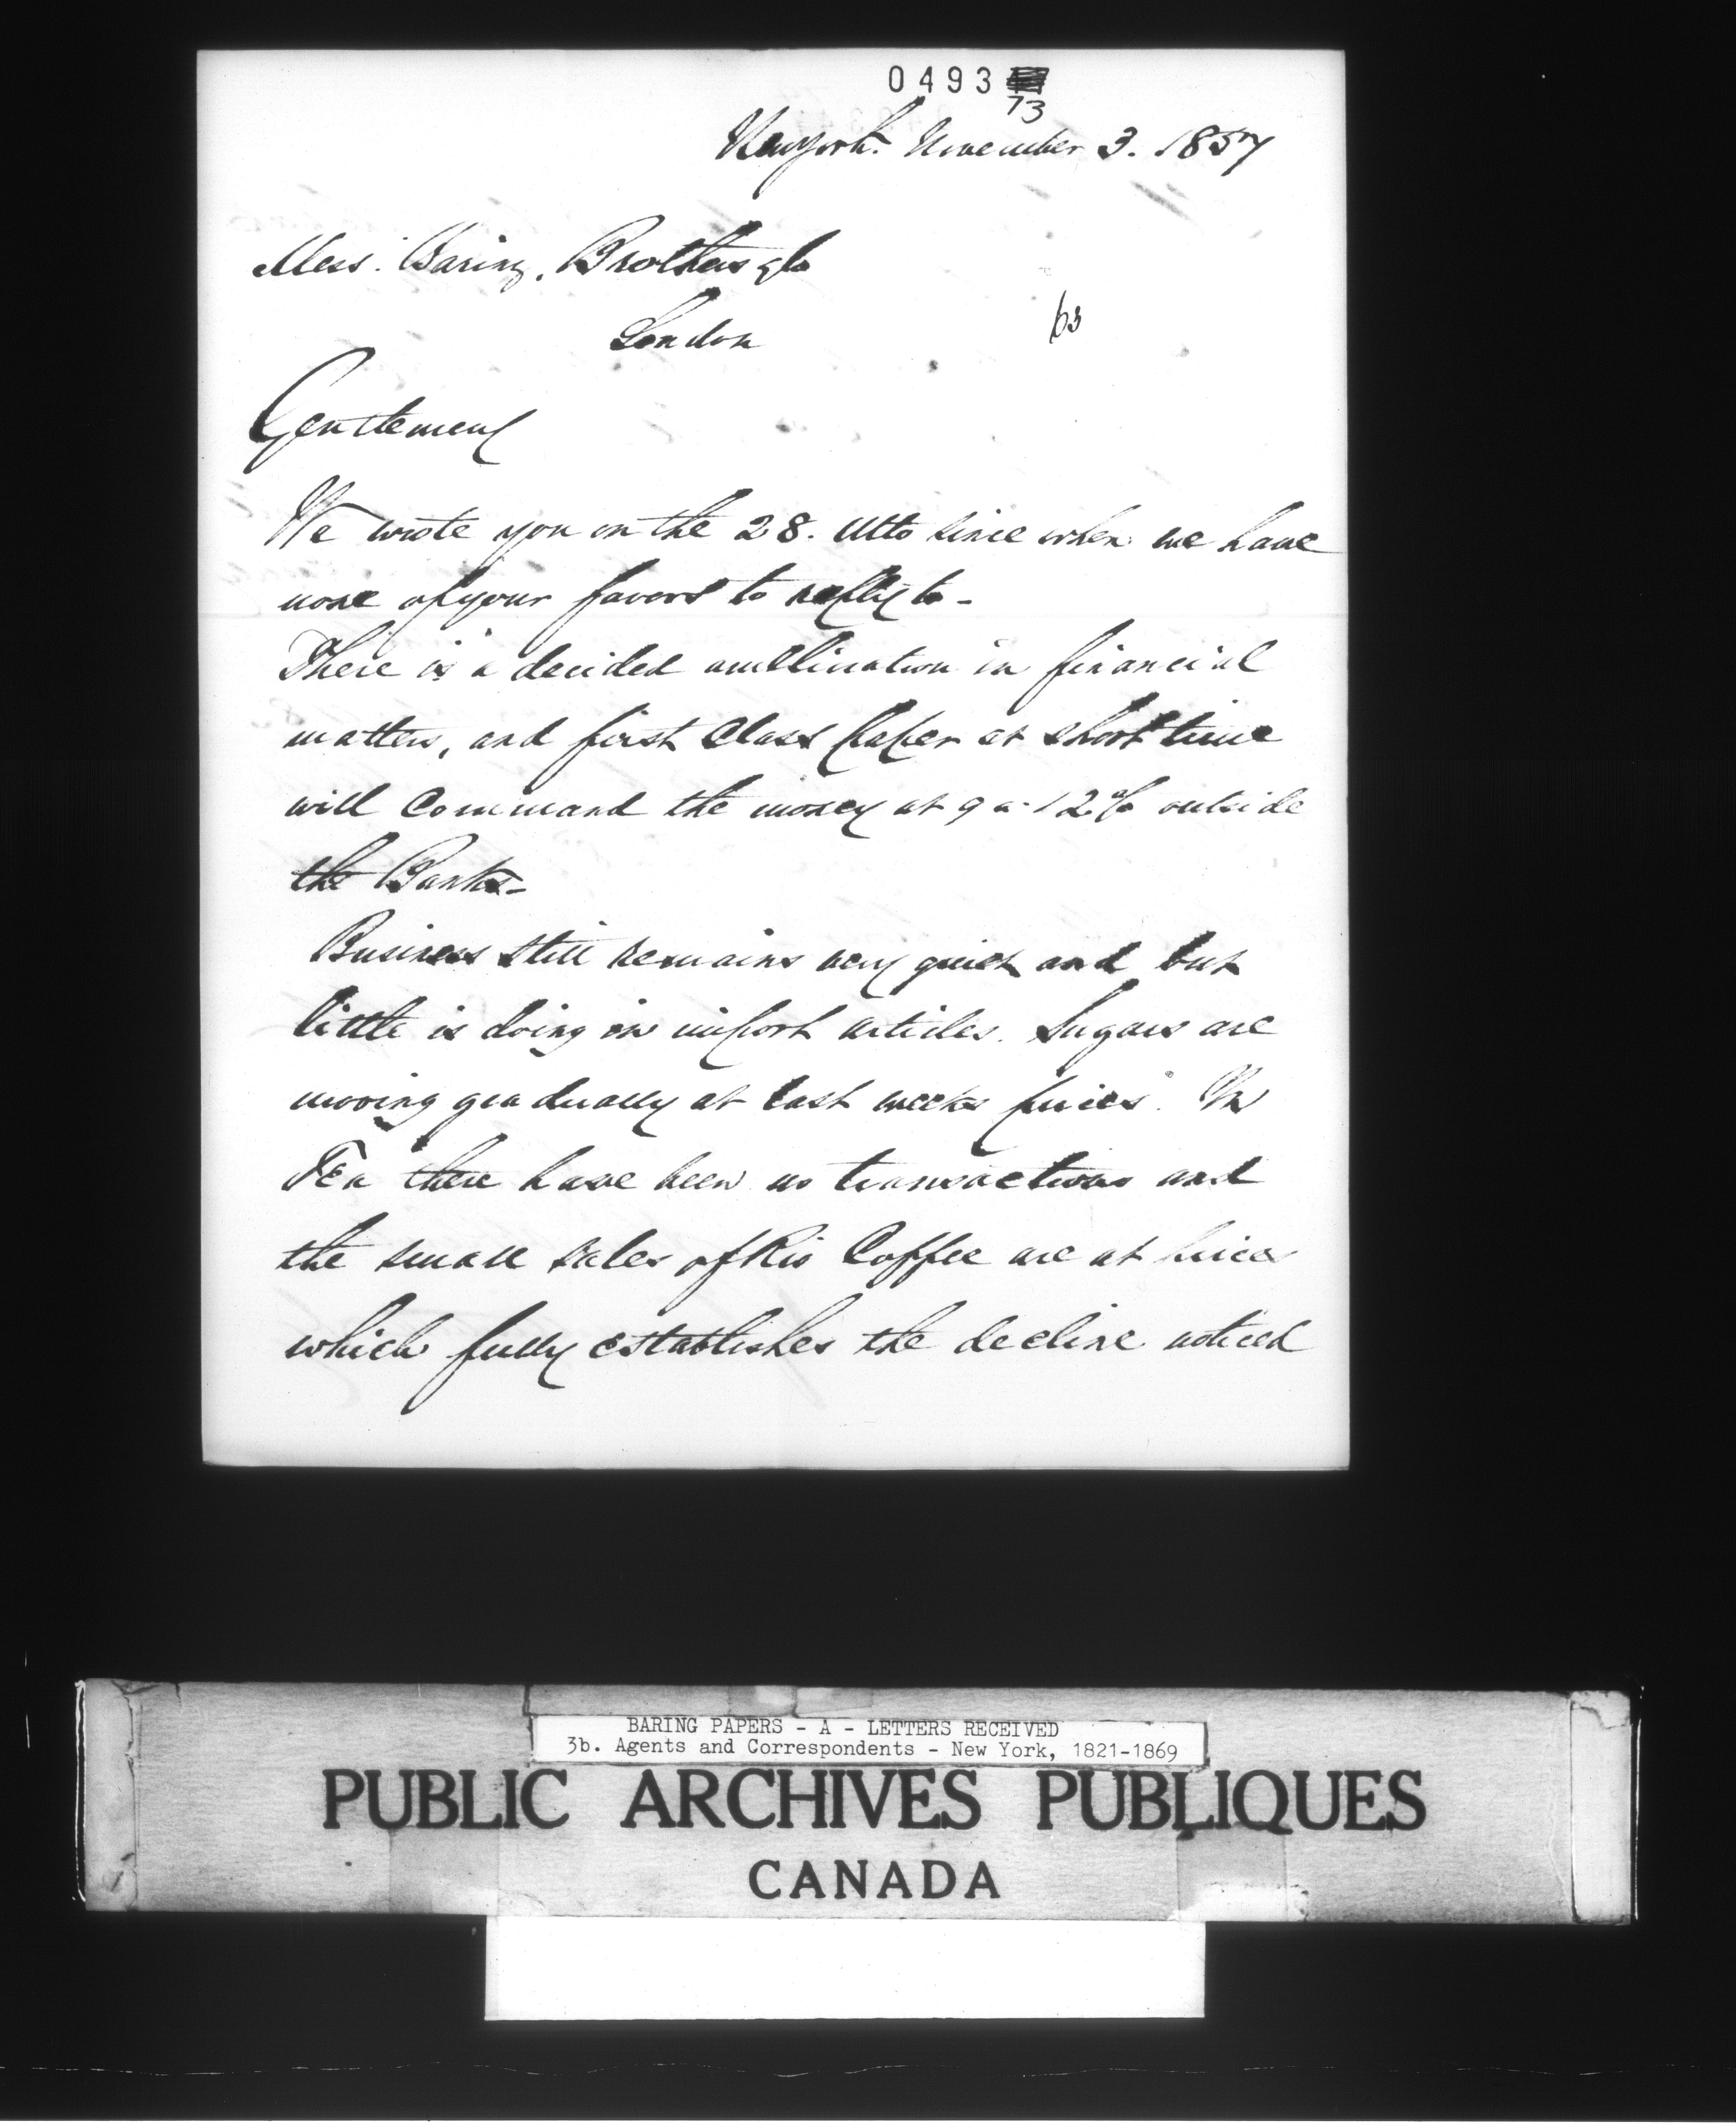 0493
73
Newyork. November 3. 1857
Mess. Baring, Brothers & Co
London
63
Gentlemen
We wrote you on the 28. Ulto since when we have
none of your favors to reply to -
There is a decided amelioration in financial
matters, and first Class paper at short time
will Command the money at 9 a 12% outside
the Banks -
Business still remains very quiet and but
little is doing in import articles. Sugars are
moving gradually at last weeks prices. In
Tea there have been no transactions and
the small sales of Rio Coffee are at prices
which fully establishes the decline noticed
BARING PAPERS - A - LETTERS RECEIVED
3b. Agents and Correspondents - New York, 1821-1869
PUBLIC ARCHIVES PUBLIQUES
CANADA